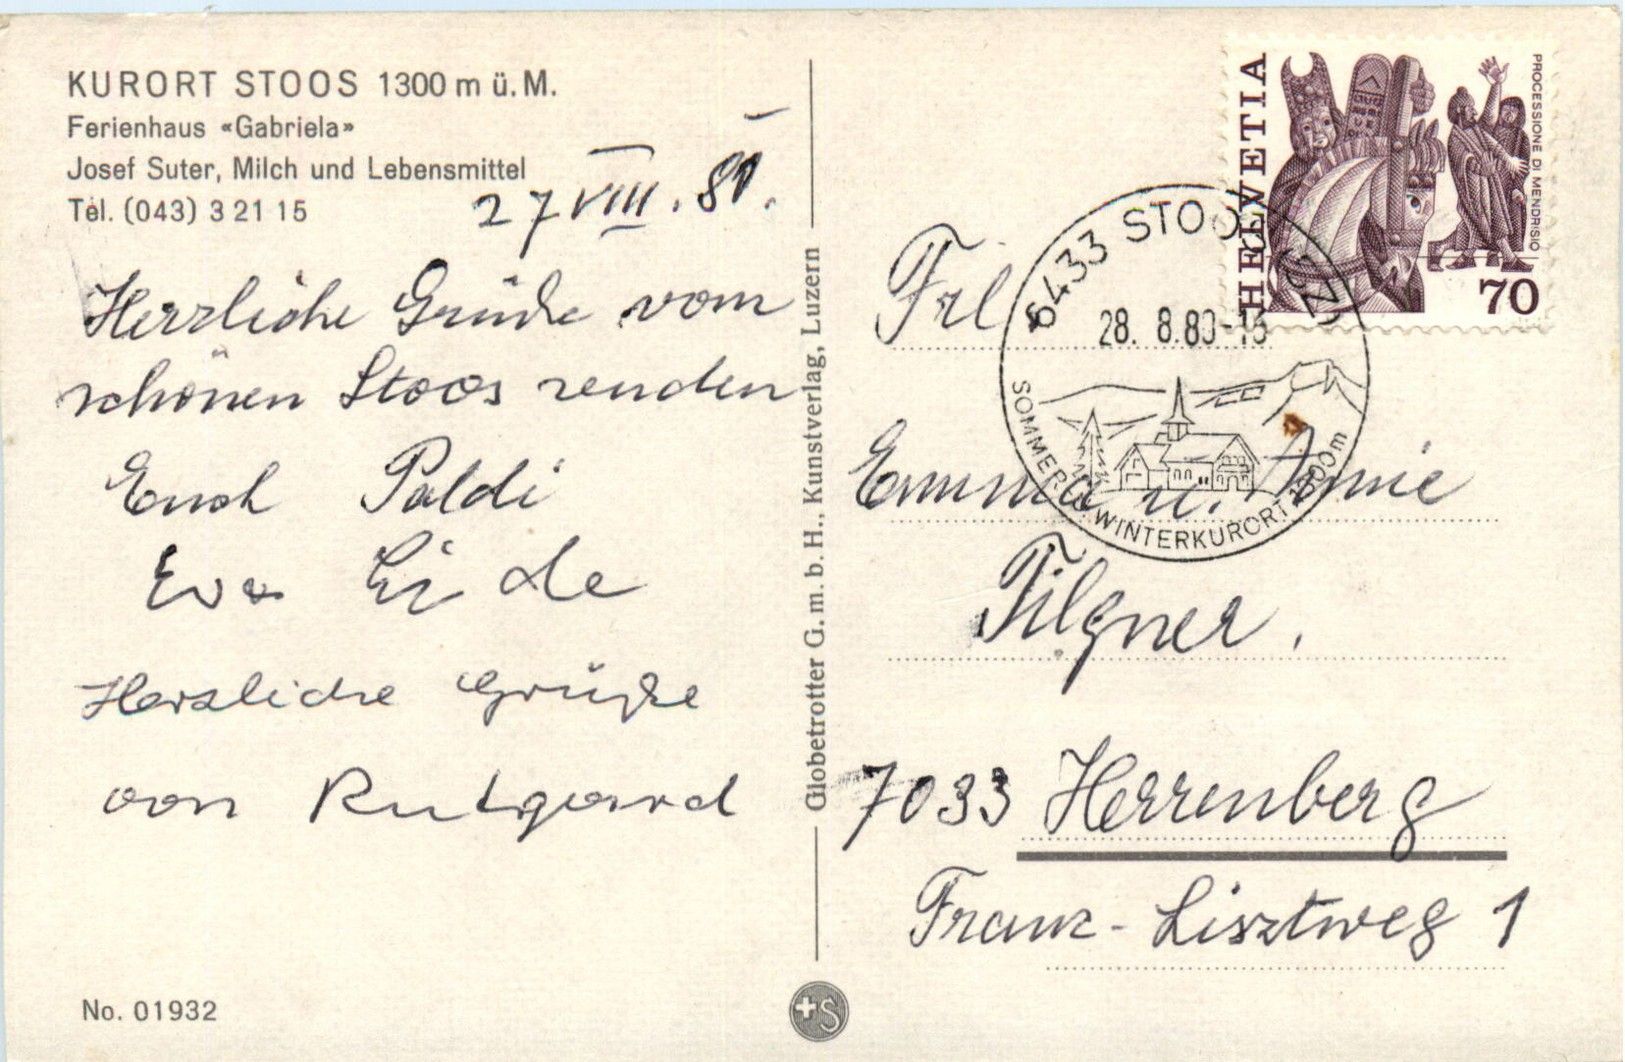 KURORT STOOS 1300 m ü. M.
Ferienhaus «Gabriela»
Josef Suter, Milch und Lebensmittel
Tel. (043) 3 21 15
27 VIII. 80.
Herzliche Grüße vom
schönen Stoos senden
Euch Poldi
Eva
Herzliche Grüße
von Rutgard
No. 01932
Globetrotter G.m.b.H., Kunstverlag, Luzern
HELVETIA
PROCESSIONE DI MENDRISIO
70
6433 STOOS SZ
28. 8.80-18
SOMMER- U. WINTERKURORT 1300m
Frl.
Emma u. Annie
Pilgner.
7033 Herrenberg
Franz-Lisztweg 1
+S